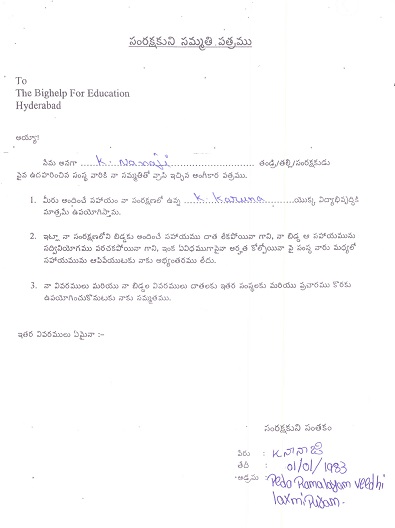 సంరక్షకుని సమ్మతి పత్రము
To
The Bighelp For Education
Hyderabad
అయ్యా!
నేను అనగా ...... K. Nanaji ...... తండ్రి/తల్లి/సంరక్షకుడు
పైన ఉదహరించిన సంస్థ వారికి నా సమ్మతితో వ్రాసి ఇచ్చిన అంగీకార పత్రము.
1. మీరు అందించే సహాయం నా సంరక్షణలో ఉన్న ...... K. Karuna ...... యొక్క విద్యాభివృద్ధికి
మాత్రమే ఉపయోగిస్తాను.
2. ఇట్లా నా సంరక్షణలోని బిడ్డకు అందించే సహాయము దాత లేకపోయినా గాని, నా బిడ్డ ఆ సహాయమును
సద్వినియోగము పరచకపోయినా గాని, ఇంక ఏవిధముగానైనా అర్హత కోల్పోయినా పై సంస్థ వారు మధ్యలో
సహాయమును ఆపివేయుటకు నాకు అభ్యంతరము లేదు.
3. నా వివరములు మరియు నా బిడ్డల వివరములు దాతలకు ఇతర సంస్థలకు మరియు ప్రచారము కొరకు
ఉపయోగించుకొనుటకు నాకు సమ్మతము.
ఇతర వివరములు ఏమైనా :-
సంరక్షకుని సంతకం
పేరు : K నానాజి
తేదీ : 01/01/1983
అడ్రసు : Peda Ramalayam veedhi
laxmipuram.